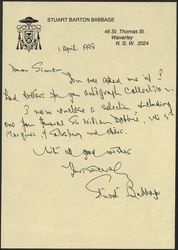 STUART BARTON BABBAGE
46 St. Thomas St.
Waverley
N. S. W. 2024
1 April 1998
Dear
You asked me if I
had letters for your autograph collection.
I now enclose a selection including
one from General Sir William Dobbie, the 5th
Marquess of Salisbury and others.
With all good wishes
Yours sincerely
Stuart Babbage